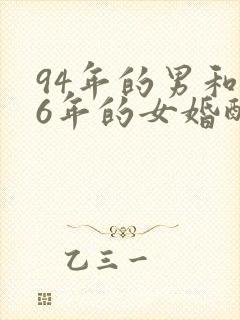 94年的男和
6年的女婚配
乙三一